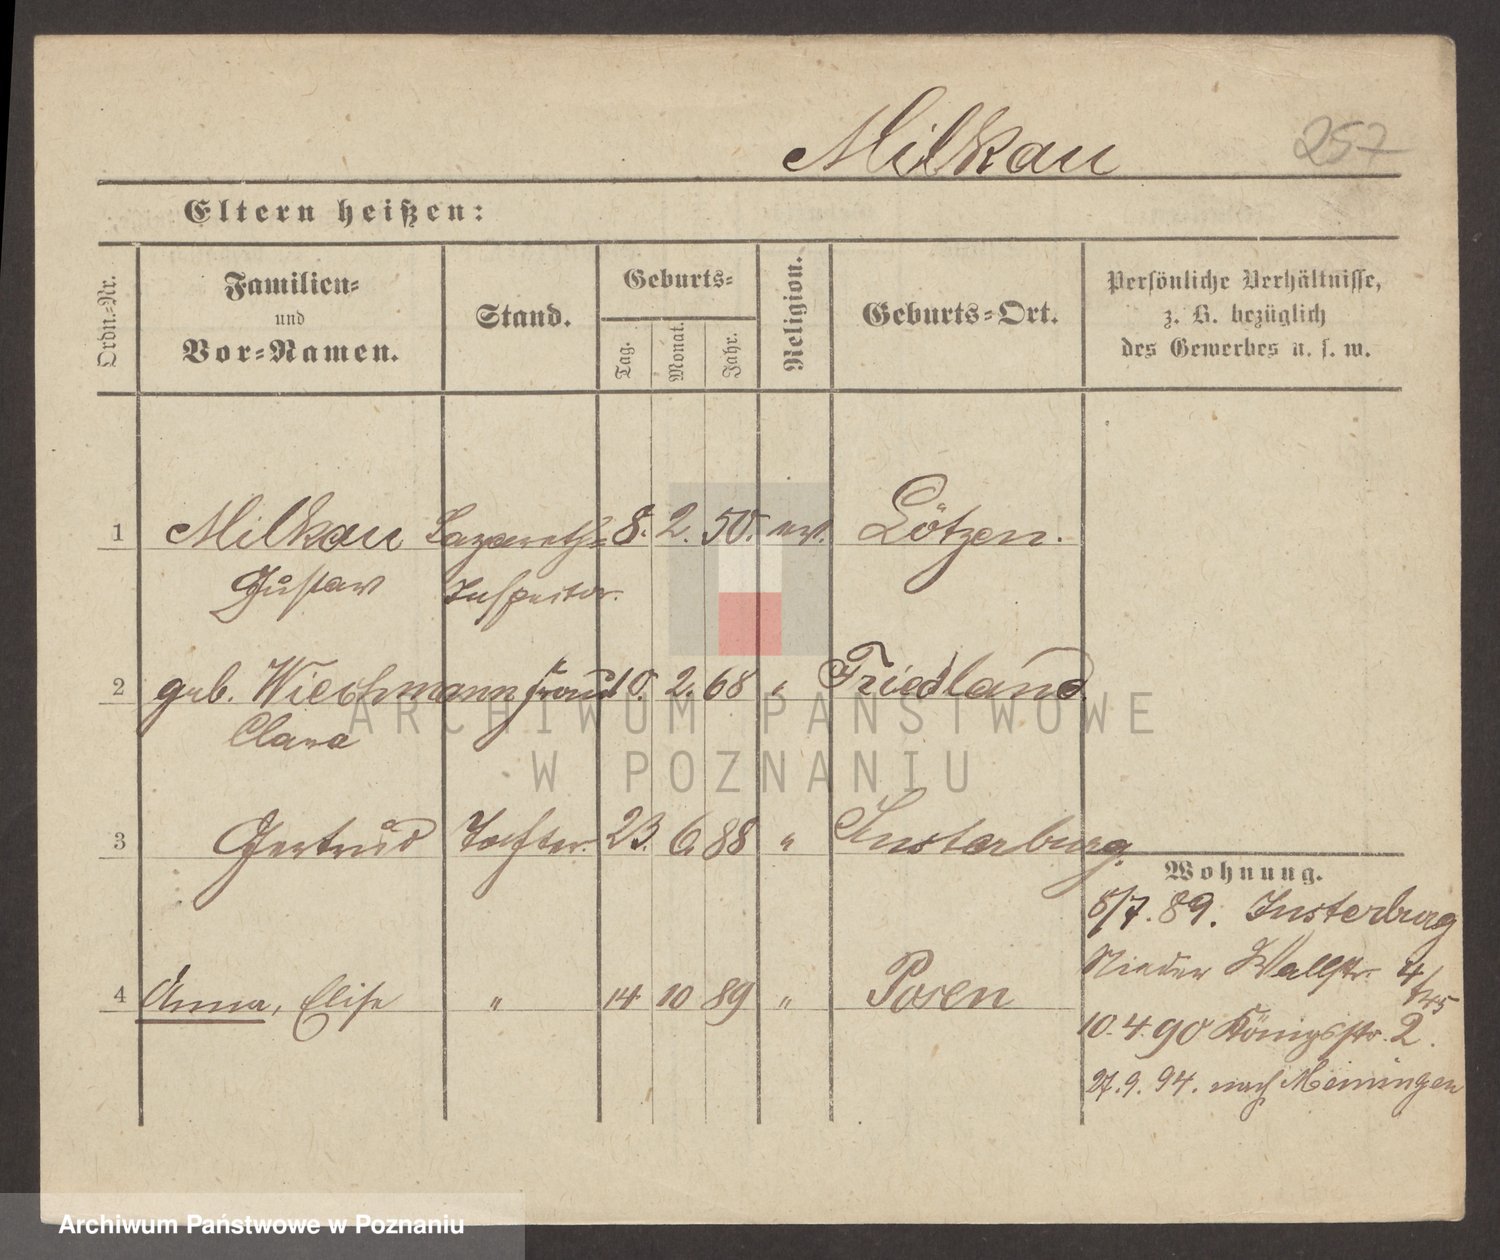 Milkau
257
Eltern heißen:
Ordn.-Nr.
Familien-
und
Vor-Namen.
Stand.
Geburts-
Tag.
Monat.
Jahr.
Religion.
Geburts-Ort.
Persönliche Verhältnisse,
z. B. bezüglich
des Gewerbes u. s. w.
1 Milkau Lazareth- 8. 2. 50. ev. Lötzen.
Gustav Inspector.
2 geb. Wiechmann Frau 10. 2. 68 " Friedland
Clara
3 Gertrud Tochter. 23. 6. 88 " Insterburg.
Wohnung.
8/7. 89. Insterburg
Nieder Wallstr. 4
4 Anna, Elise " 14 10 89 " Posen
10. 4. 90 Königsstr. 2.
27. 9. 94. nach Meiningen
ARCHIWUM PAŃSTWOWE
W POZNANIU
Archiwum Państwowe w Poznaniu